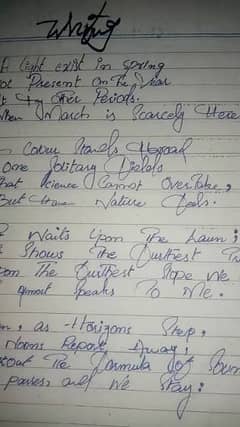 Writing
A Light exist in spring
not Present on The Year
At Any other Periods.
When March is Scarcely Here
Colour stands Abroad
one Solitary
that science Cannot Overtake,
But Human Nature feels.
Waits Upon The Lawn;
Shows The Furthest
on The Furthest Slope We
almost Speaks To Me.
as Horizons Step,
Noons Report Away,
The Formula of Soun
passes and We Stay: